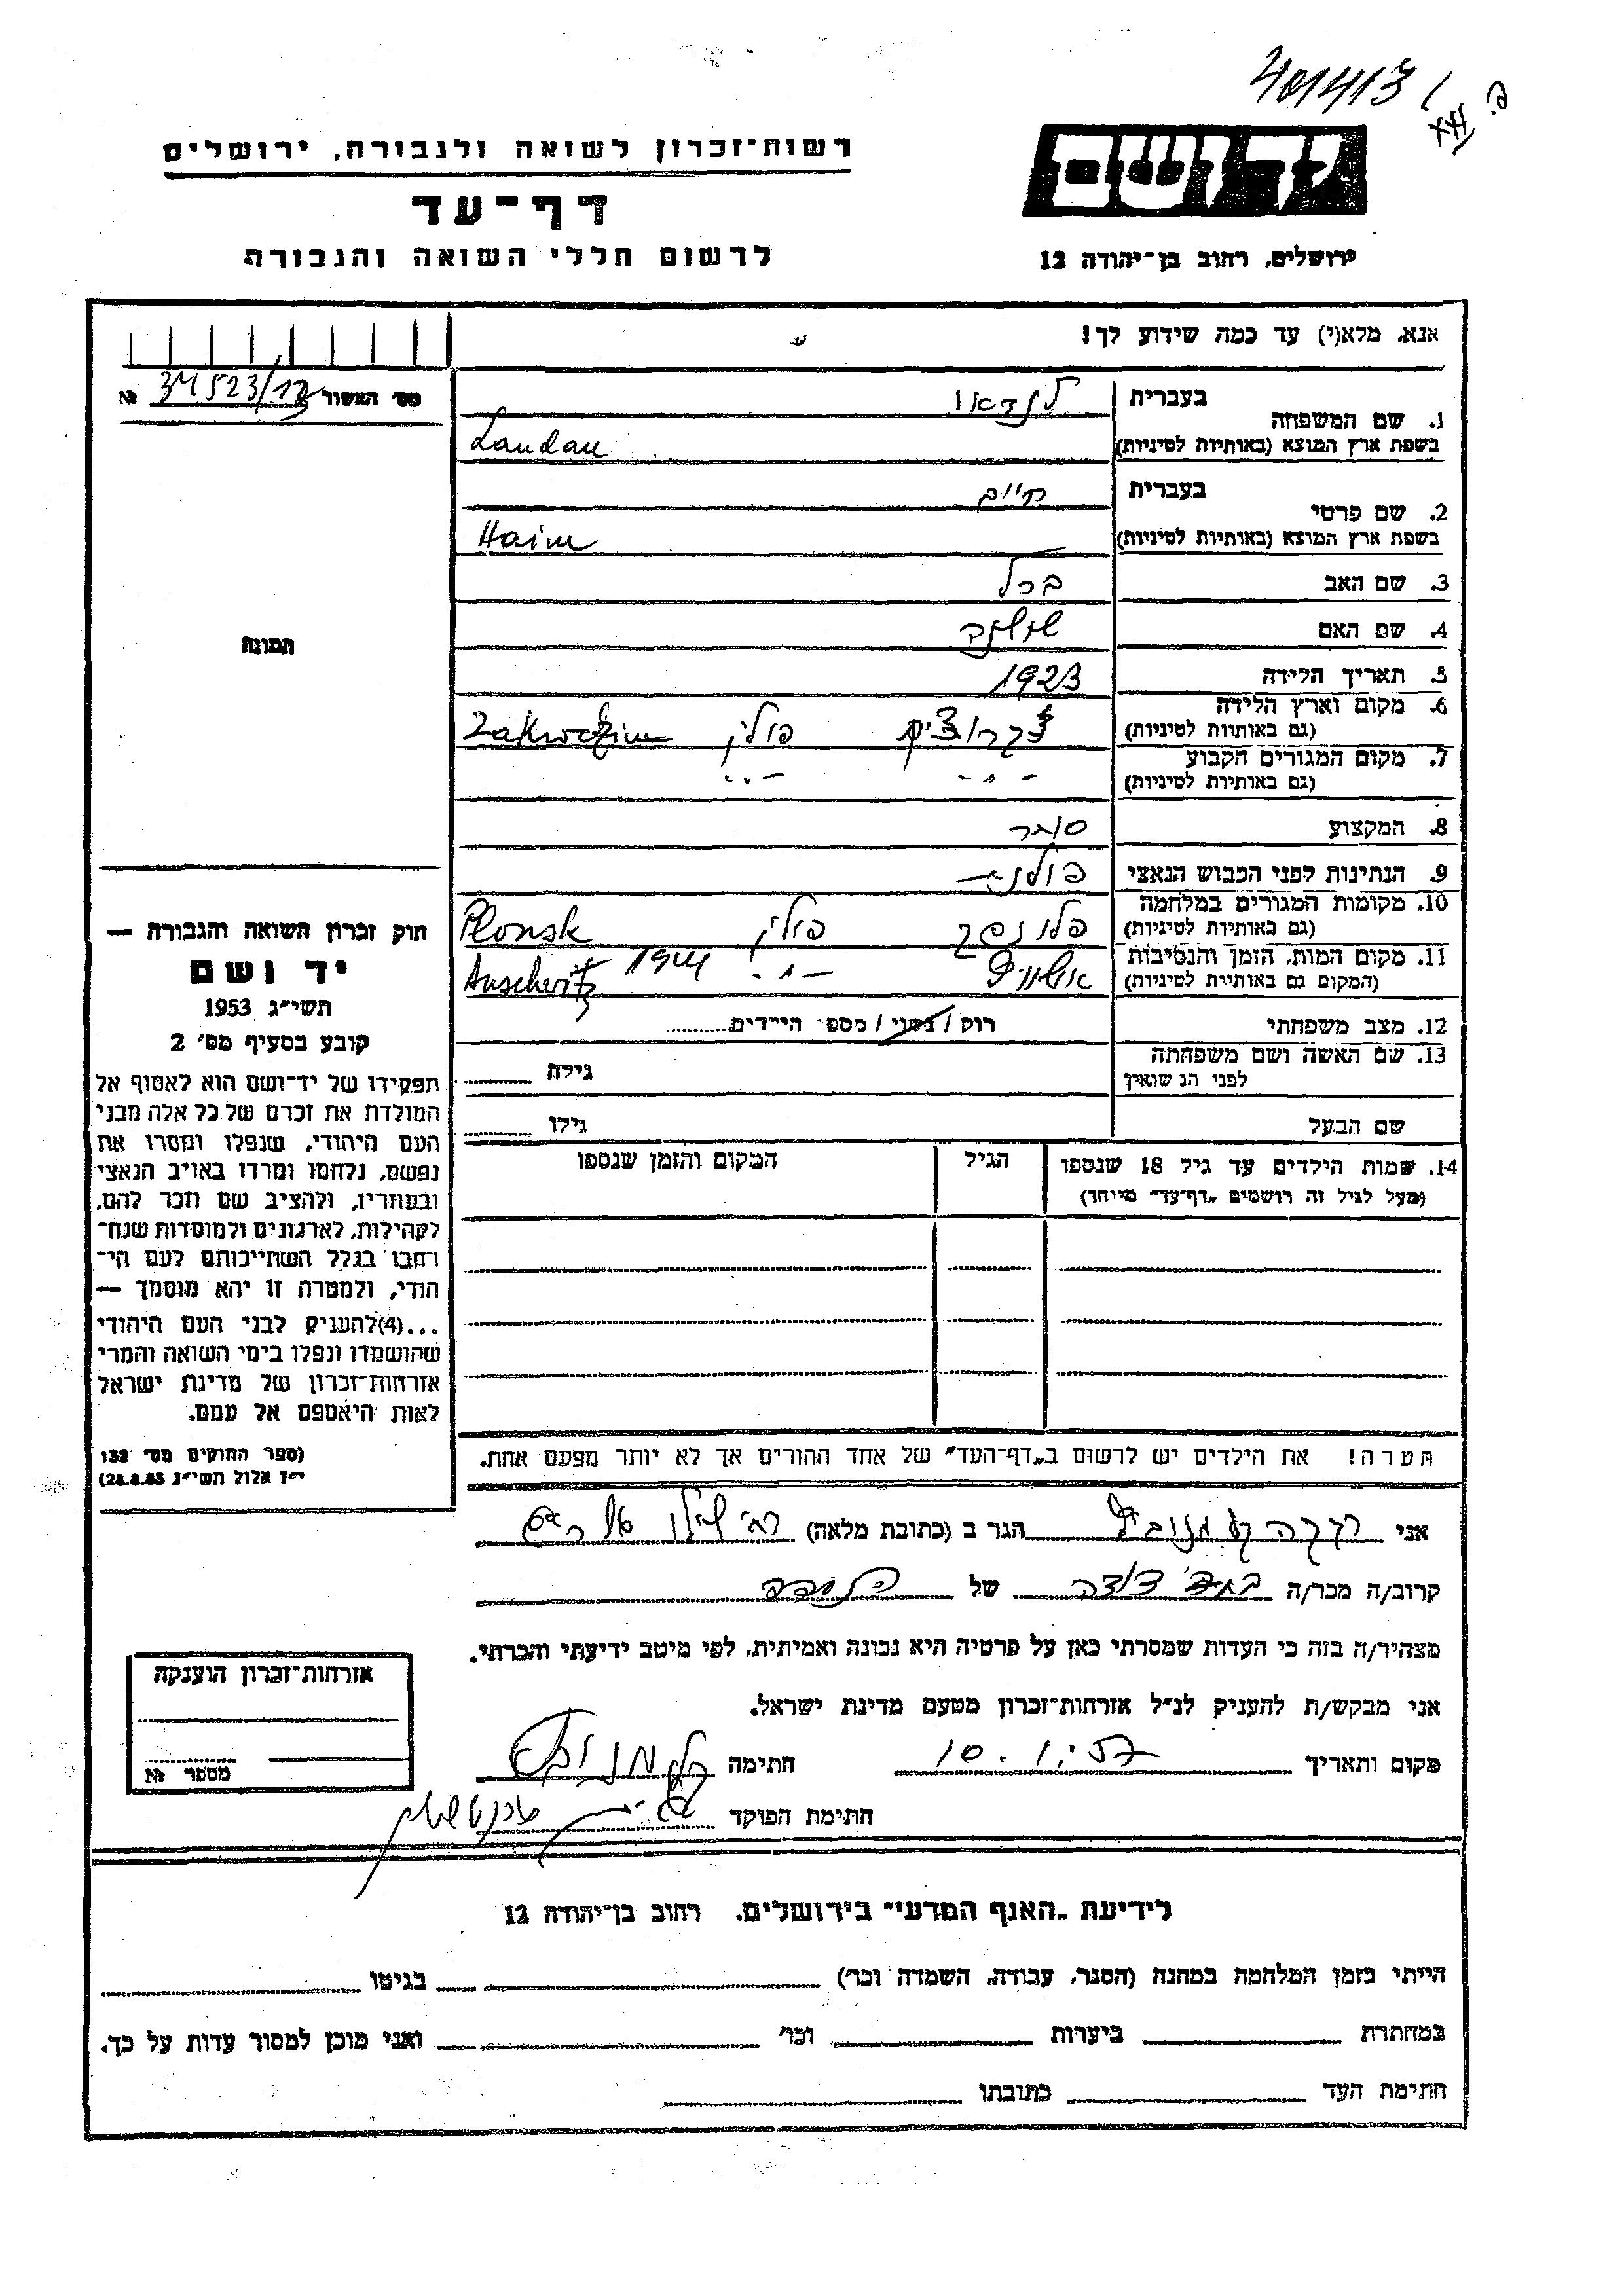 401413 /
רשות־זכרון לשואה ולגבורה, ירושלים
יד ושם
דף־עד
לרשום חללי השואה והגבורה
ירושלים, רחוב בן־יהודה 12
אנא, מלא(י) עד כמה שידוע לך!
מס׳ האשור 34523/12 №
1. שם המשפחה
בעברית לנדאו
בשפת ארץ המוצא (באותיות לטיניות) Landau
2. שם פרטי
בעברית חיים
בשפת ארץ המוצא (באותיות לטיניות) Haim
3. שם האב ברל
4. שם האם
5. תאריך הלידה 1923
6. מקום וארץ הלידה
(גם באותיות לטיניות) פולין
7. מקום המגורים הקבוע
(גם באותיות לטיניות) -"- -"-
8. המקצוע סוחר
9. הנתינות לפני הכבוש הנאצי פולנית
10. מקומות המגורים במלחמה
(גם באותיות לטיניות) פלונסק פולין Plonsk
11. מקום המות, הזמן והנסיבות
(המקום גם באותיות לטיניות) אושוויץ -"- 1944 Auschwitz
12. מצב משפחתי רוק / נשוי / מספ׳ הילדים
13. שם האשה ושם משפחתה
לפני הנשואין גילה
שם הבעל גילו
14. שמות הילדים עד גיל 18 שנספו הגיל המקום והזמן שנספו
(מעל לגיל זה רושמים „דף־עד” מיוחד)
הערה! את הילדים יש לרשום ב„דף־העד” של אחד ההורים אך לא יותר מפעם אחת.
תמונה
חוק זכרון השואה והגבורה —
יד ושם
תשי״ג 1953
קובע בסעיף מס׳ 2
תפקידו של יד־ושם הוא לאסוף אל
המולדת את זכרם של כל אלה מבני
העם היהודי, שנפלו ומסרו את
נפשם, נלחמו ומרדו באויב הנאצי
ובעוזריו, ולהציב שם וזכר להם,
לקהילות, לארגונים ולמוסדות שנח־
רבו בגלל השתייכותם לעם הי־
הודי, ולמטרה זו יהא מוסמך —
...(4) להעניק לבני העם היהודי
שהושמדו ונפלו בימי השואה והמרי
אזרחות־זכרון של מדינת ישראל
לאות היאספם אל עמם.
(ספר החוקים מס׳ 132
י״ז אלול תשי״ג 28.8.53)
אני רבקה הגר ב (כתובת מלאה)
קרוב/ה מכר/ה בת דודה של
מצהיר/ה בזה כי העדות שמסרתי כאן על פרטיה היא נכונה ואמיתית, לפי מיטב ידיעתי והכרתי.
אני מבקש/ת להעניק לנ״ל אזרחות־זכרון מטעם מדינת ישראל.
מקום ותאריך חתימה
חתימת הפוקד
אזרחות־זכרון הוענקה
מספר №
לידיעת „האגף המדעי” בירושלים, רחוב בן־יהודה 12
הייתי בזמן המלחמה במחנה (הסגר, עבודה, השמדה וכו׳) בגיטו
במחתרת ביערות וכו׳ ואני מוכן למסור עדות על כך.
חתימת העד כתובתו